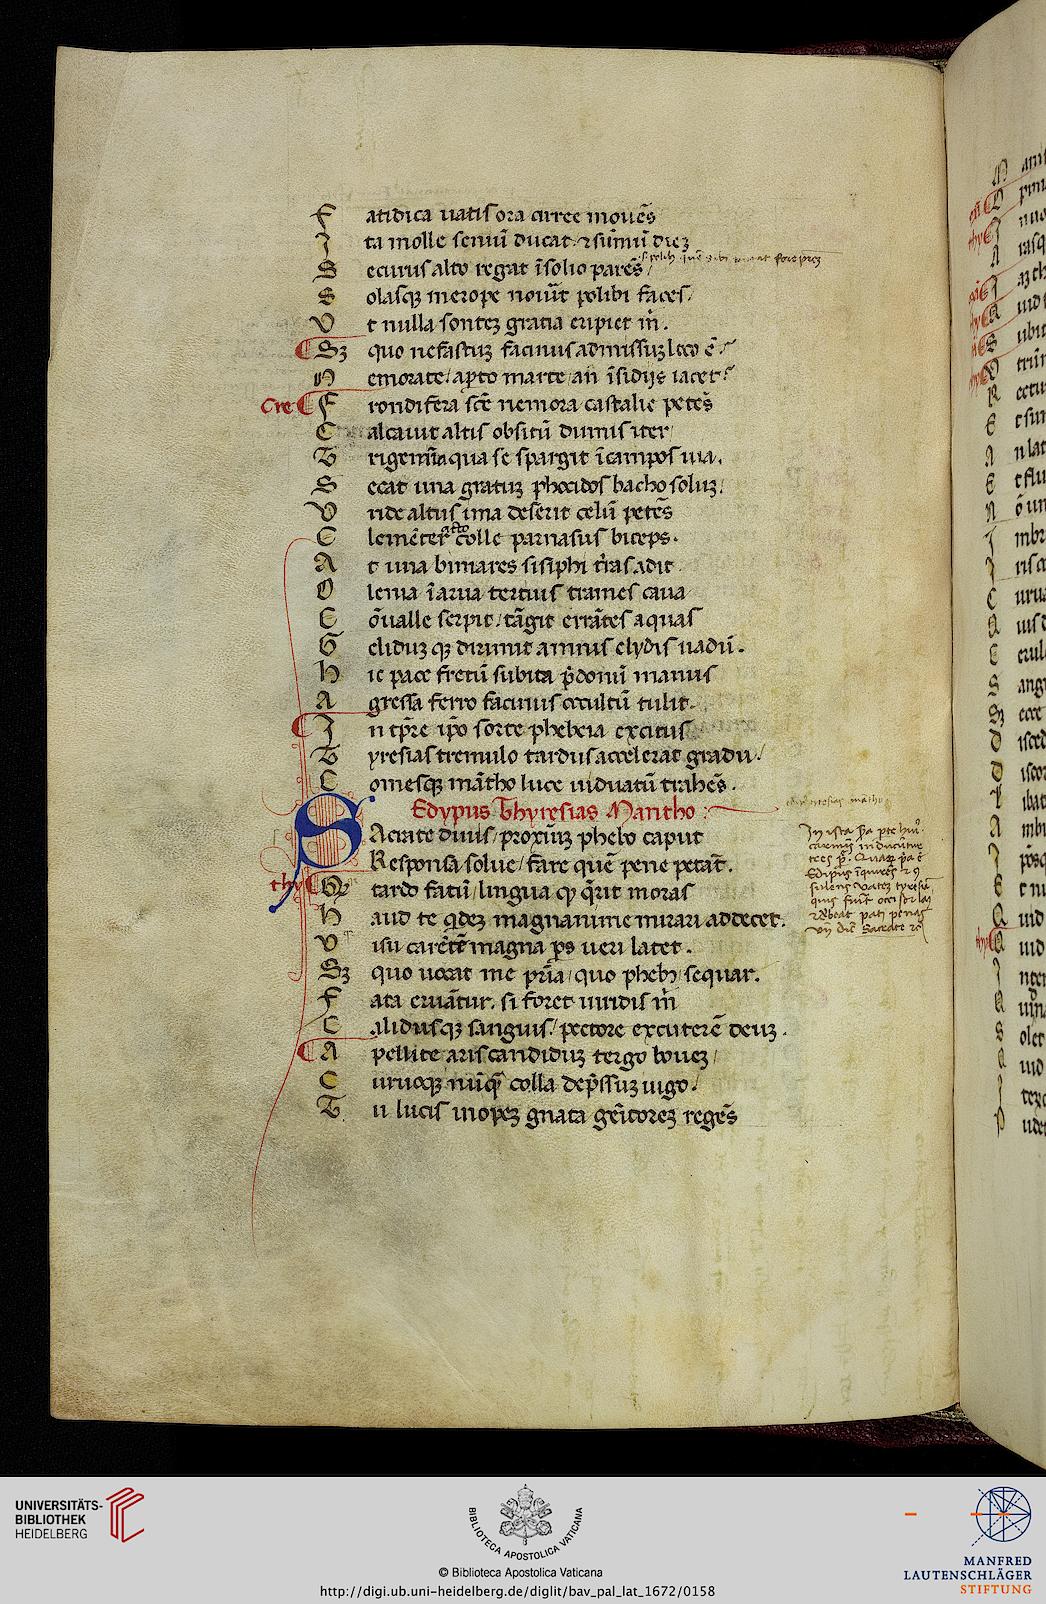 F atidica uatis ora cirree mouēs
I ta molle seniū ducat ⁊ sūmū diez
S ecurus alto regat ī solio parēs
S olasqꝫ merope nouīt polibi faces
V t nulla sontez gratia eripiet m̄.
Sz quo nefastuz facinus admissuz loco ē?
N emorate / apto marte / an īsidijs iacet?
cre F rondifera scē nemora castalie petēs
C alcauit altis obsitū dumis iter
T rigemīa qua se spargit ī campos uia.
S ecat una gratuz phocidos bacho soluz.
V nde altus ima deserit celū petēs
C lemēter acto colle parnasus biceps.
A t una bimares sisiphi t̄ras adit
O lenia ī arua tertius trames caua
C ōualle serpit / tāgit errātes aquas
G eliduz qꝫ dirimit amnis elydis uadū.
H ic pace fretū subita p̄donū manus
A gressa ferro facinus occultū tulit.
I n tp̄re ip̄o sorte phebeia excitus
T yresias tremulo tardus accelerat gradu.
C omesqꝫ mātho luce uiduatū trahēs.
Edypus Thyresias Mantho:
S Acrate diuis / proxīuz phebo caput
Responsa solue / fare quē pene petāt.
thy Q tardo fatū / lingua qꝫ q̄rit moras
H aud te qdez magnanime mirari addecet.
V isu carētē magna ps ueri latet.
Sz quo uocat me pr̄ia / quo phebꝰ / sequar.
F ata eruātur. si foret uiridis m̄
C alidusqꝫ sanguis / pectore excuterē deuz.
A pellite aris candiduz tergo bouez
C uruoqꝫ nūqꝫ colla dep̄ssuz iugo.
T u lucis inopez gnata gēitorez regēs
UNIVERSITÄTS-
BIBLIOTHEK
HEIDELBERG
BIBLIOTECA APOSTOLICA VATICANA
© Biblioteca Apostolica Vaticana
http://digi.ub.uni-heidelberg.de/diglit/bav_pal_lat_1672/0158
MANFRED
LAUTENSCHLÄGER
STIFTUNG